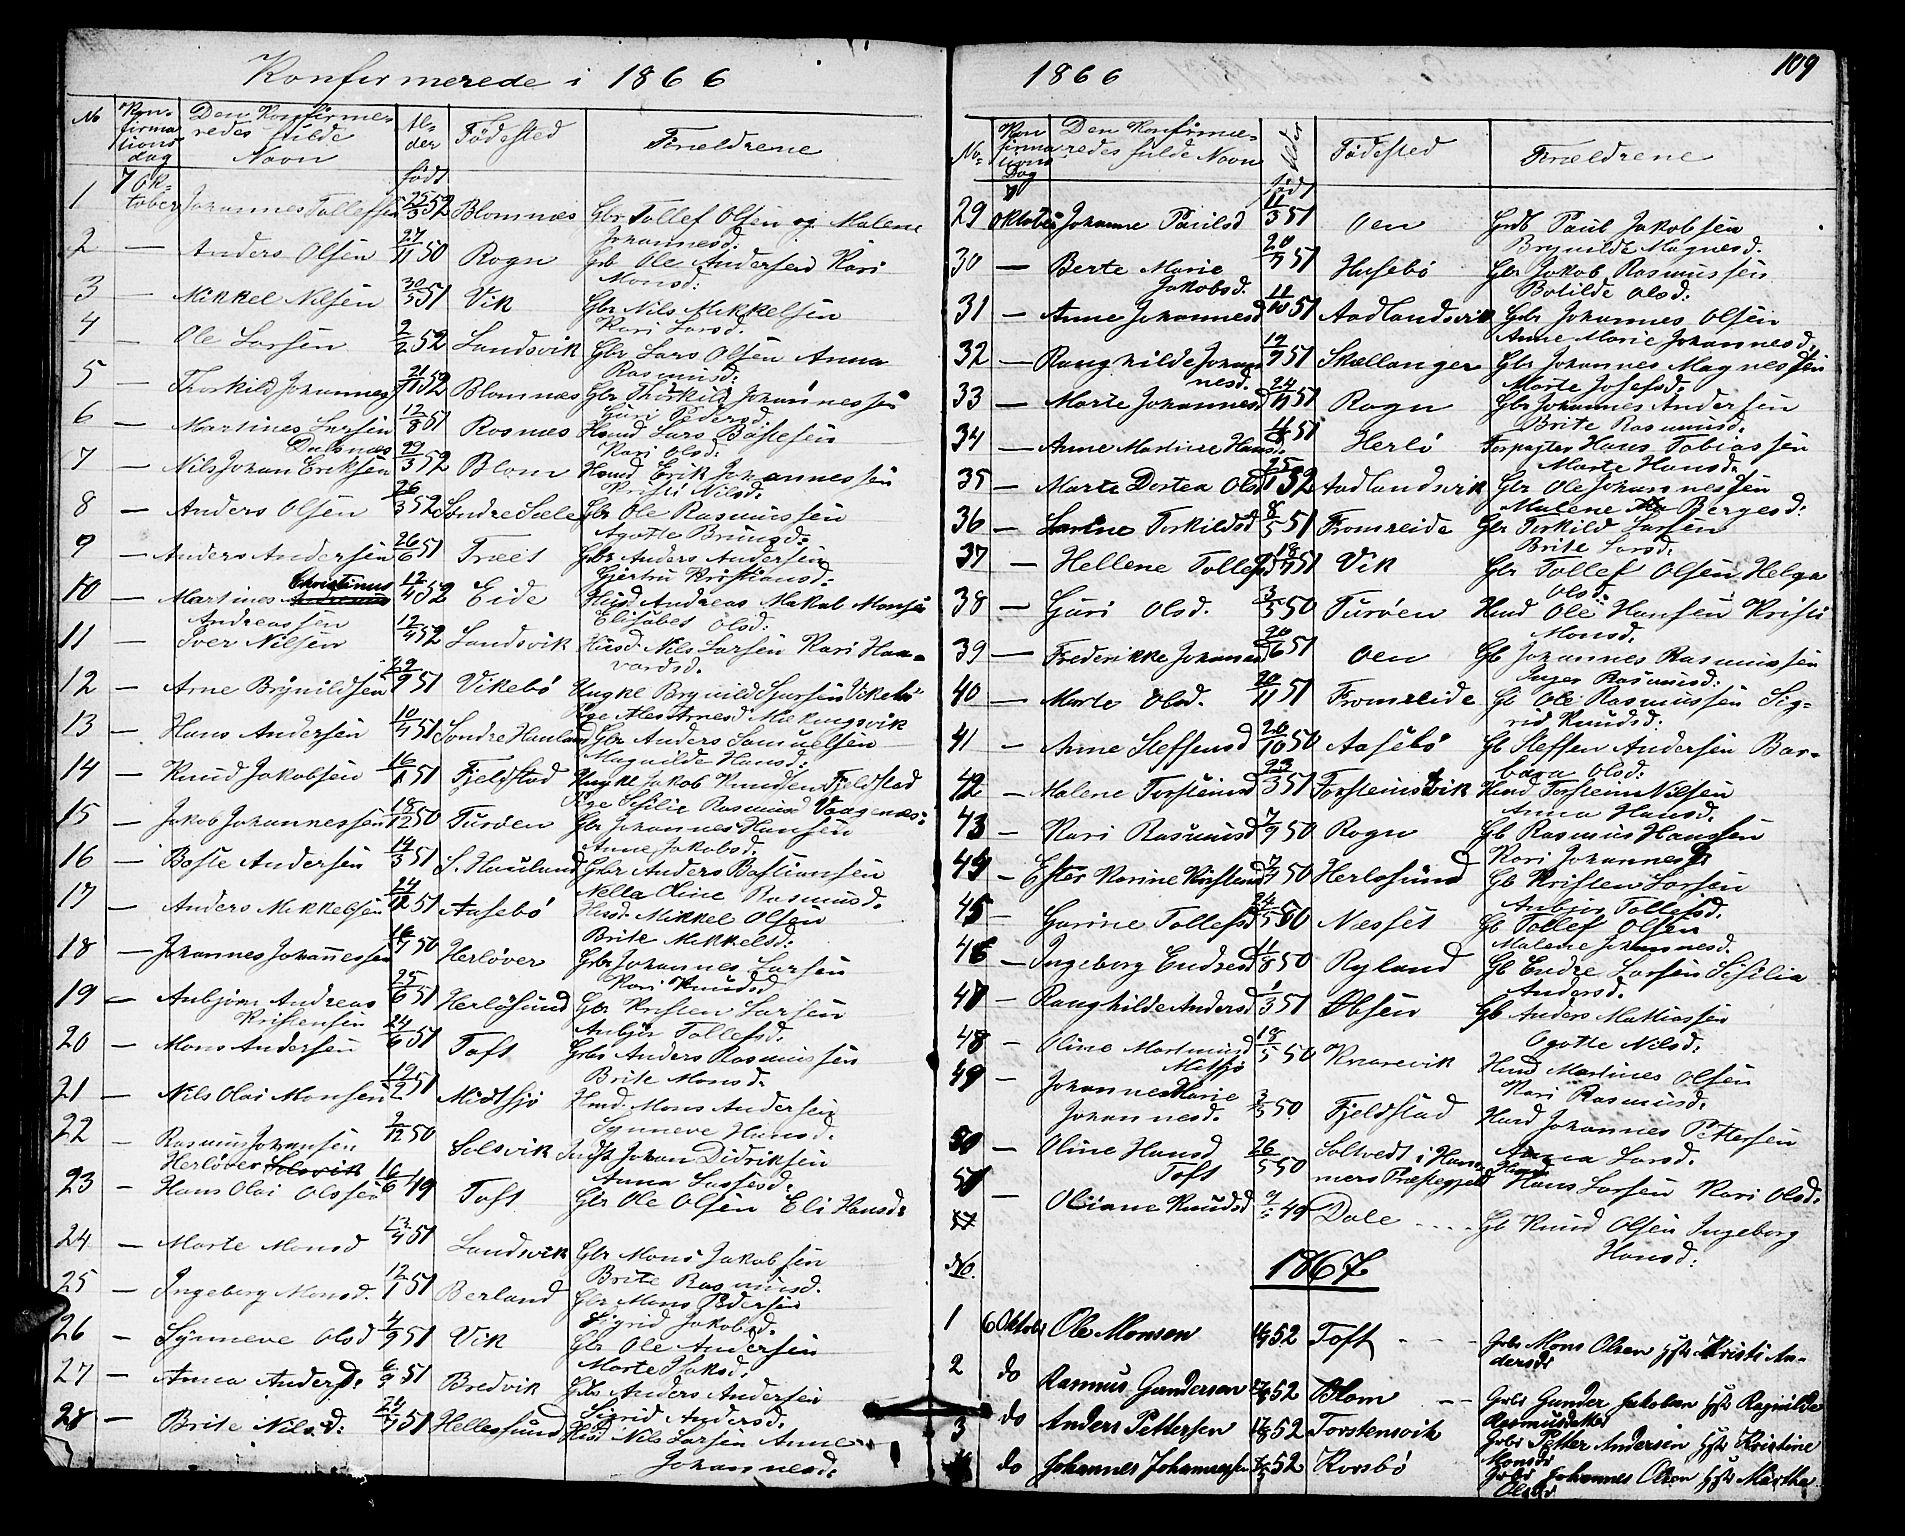 Konfirmerede i 1866
No Kon-firmations dag Den Konfirme-redes fulde Navn Al-der født Fødested Forældrene
1 7 Ok-tober Johannes Tollefsen 25/3 52 Blomnæs Gbr Tollef Olsen og Malene Johannesd:
2 — Anders Olsen 27/11 50 Rogn Grb Ole Andersen Kari Monsd:
3 — Mikkel Nilsen 30/5 51 Vik Gbr Nils Mikkelsen Kari Larsd.
4 — Ole Larsen 2/2 52 Landsvik Gbr Lars Olsen Anna Rasmusd:
5 — Thorkild Johannes 21/11 52 Blomnæs Gbr Thorkild Johannessen Guri Pedersd.
6 — Martines Larsen Dalsnæs 12/8 51 Rosnæs Hsmd Lars Bastesen Kari Olsd:
7 — Nils Johan Eriksen 29/3 52 Blom Hsmd Erik Johannessen Kristi Nilsd.
8 — Anders Olsen 26/3 52 Søndre Sæle Gbr Ole Rasmussen Agatte Brunsd:
9 — Anders Andersen 26/6 51 Træet Gbr Anders Andersen Gjertru Kristiansd:
10 — Martines Christinus Andreassen 12/4 52 Eide Husd Andreas Makab Monsen Elisabet Olsd:
11 — Iver Nilsen 12/4 52 Landsvik Husd Nils Larsen Kari Haavardsd.
12 — Arne Brynildsen 29/9 51 Vikebø Ungkl Brynild Larsen Vikebø Pge Ales Arnesd Mækingsvik
13 — Hans Andersen 10/4 51 Søndre Hauland Gbr Anders Samuelsen Magnilde Hansd:
14 — Knud Jakobsen 16/1 51 Fjeldstad Ungkl Jakob Knudsen Fjeldstad Pge Sesilie Rasmusd Vaagenæs:
15 — Jakob Johannessen 18/12 50 Turøen Gbr Johannes Hansen Anne Jakobsd.
16 — Baste Andersen 19/3 51 S. Hauland Gbr Anders Bastiansen Nella Oline Rasmusd.
17 — Anders Mikkelsen 24/12 51 Aasebø Husd. Mikkel Olsen Brite Mikkelsd:
18 — Johannes Johannessen 16/7 50 Herløver Gbr Johannes Larsen Kari Knudsd
19 — Anbjørn Andreas Kristensen 25/6 51 Herløsund Gbr Kristen Larsen Anbjør Tollefsd.
20 — Mons Andersen 24/6 51 Toft Gbr Anders Rasmussen Brite Monsd:
21 — Nils Olai Monsen 19/2 51 Midtsjø Husd. Mons Andersen Synneve Hansd.
22 — Rasmus Johansen Herløver 2/12 50 Solsvik Johan Didriksen Anna Lassesd:
23 — Hans Olai Olsen 16/6 49 Toft Gbr Ole Olsen Eli Hansd:
24 — Marte Monsd 13/4 51 Landsvik Gbr Mons Jakobsen Brite Rasmusd.
25 — Ingeborg Monsd. 12/1 51 Berland Gbr Mons Pedersen Sigrid Jakobsd.
26 — Synneve Olsd 4/9 51 Vik Gbr Ole Andersen Marte Isaksd.
27 — Anna Andersd: 6/9 51 Bredvik Gbr Anders Andersen Sigrid Andersd.
28 — Brite Nilsd: 24/7 51 Hellesund Husd Nils Larsen Anne Johannesd.
1866
109
No. Kon firma tions Dag Den Konfirme-redes fulde Navn Alder født Fødested Forældrene
29 Oktober Johanne Paulsd 11/3 51 Oen Grdb Paul Jakobsen Brynilde Magnesd.
30 — Berte Marie Jakobsd. 20/7 51 Husebø Gbr Jakob Rasmussen Botilde Olsd:
31 — Anne Johannesd 11/10 51 Aadlandsvik Gbr Johannes Olsen Anne Marie Johannesd.
32 — Raughilde Johannesd. 12/9 51 Skallanger Gbr Johannes Magnessen Marte Josefsd.
33 — Marte Johannesd 24/11 51 Rogn Gbr Johannes Andersen Brite Rasmusd.
34 — Anne Martine Hansd. 51 Herlø Forpagter Hans Tobiassen Marte Hansd.
35 — Marte Dortea Olsd 25/1 52 Aadlandsvik Gbr Ole Johannessen Malene Bergesd:
36 — Larine Torkildsd 8/5 51 Fromreide Gbr Torkild Larsen Brite Larsd.
37 — Hellene Tollefsd 18/7 51 Vik Gbr Tollef Olsen Helga Olsd.
38 — Guri Olsd. 3/5 50 Turøen Husd Ole Hansen Kristi Monsd.
39 — Frederikke Johannesd 20/6 51 Oen Gb Johannes Rasmussen Inger Rasmusd:
40 — Marte Olsd. 20/11 51 Fromreide Gb Ole Rasmussen Sigrid Knudsd:
41 — Anne Steffensd 20/10 50 Aasebø Gb Steffen Andersen Barbara Olsd:
42 — Malene Torsteinsd 23/3 51 Torsteinsvik Husd Torstein Nilsen Anna Hansd.
43 — Kari Rasmusd 7/9 50 Rogn Gb Rasmus Hanssen Kari Johannesd
44 — Ester Karine Kristensd 7/7 50 Herlosund Gb Kristen Larsen Anbjør Tollefsd.
45 — Gurine Tollefsd 24/5 50 Næsset Gb Tollef Olsen Malene Johannesd.
46 — Ingeborg Endresd 11/8 50 Ryland Gb Endre Larsen Sisilia Andersd.
47 — Raughilde Andersd 1/3 51 Obsen Gb Anders Mathiassen Agatte Nilsd.
48 — Oline Martinusd Mitsjø 18/5 50 Knarrevik Husd Martines Olsen Kari Rasmusd.
49 — Johanne Marie Johannesd. 3/5 50 Fjeldstad Husd Johannes Pettersen Anna Larsd.
50 — Oline Hansd Toft 26/5 50 Saltvedt i Hammers Præstegjeld Husd Hans Larsen Kari Olsd.
51 — Oliane Knudsd 49 Dale - - - - Gb Knud Olsen Ingeborg Hansd:
No. 1867
1 6 Oktober Ole Monsen 52 Toft - - - Grbr Mons Olsen Hstr Kristi Andersdr
2 do Rasmus Gundersen 52 Blom - - Grbr Gunder Jakobsen Hstr Ragnilde Rasmusdatter
3 do Anders Pettersen 52 Torstensvik Grbr Petter Andersen Hstr Kristine Monsdr
4 do Johannes Johannessen 52 Korsbø Grbr Johannes Olsen Hstr Martha Olsdr